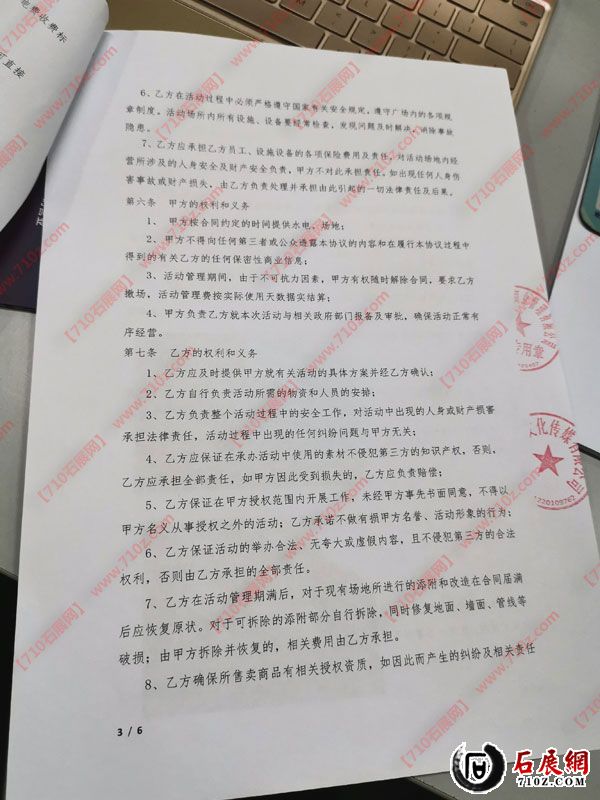 能费收费标
可直接
6、乙方在活动过程中必须严格遵守国家有关安全规定，遵守广场内的各项规
章制度。活动场所内所有设施、设备要经常检查，发现问题及时解决，消除事故
隐患。
7、乙方应承担乙方员工、设施设备的各项保险费用及责任，对活动场地内经
营所涉及的人身安全及财产安全负责，甲方不对此承担责任。如出现任何人身伤
害事故或财产损失，由乙方负责处理并承担由此引起的一切法律责任及后果。
第六条 甲方的权利和义务
1、 甲方按合同约定的时间提供水电、场地；
2、 甲方不得向任何第三者或公众透露本协议的内容和在履行本协议过程中
得到的有关乙方的任何保密性商业信息；
3、活动管理期间，由于不可抗力因素，甲方有权随时解除合同，要求乙方
撤场，活动管理费按实际使用天数据实结算；
4、甲方负责乙方就本次活动与相关政府部门报备及审批，确保活动正常有
序经营。
第七条 乙方的权利和义务
1、乙方应及时提供甲方就有关活动的具体方案并经乙方确认；
2、乙方自行负责活动所需的物资和人员的安排；
3、乙方负责整个活动过程中的安全工作，对活动中出现的人身或财产损害
承担法律责任，活动过程中出现的任何纠纷问题与甲方无关；
4、乙方应保证在承办活动中使用的素材不侵犯第三方的知识产权，否则，
乙方应承担全部责任，如甲方因此受到损失的，乙方应负责赔偿；
5、乙方保证在甲方授权范围内开展工作，未经甲方事先书面同意，不得以
甲方名义从事授权之外的活动；乙方承诺不做有损甲方名誉、活动形象的行为；
6、乙方保证活动的举办合法、无夸大或虚假内容，且不侵犯第三方的合法
权利，否则由乙方承担的全部责任。
7、乙方在活动管理期满后，对于现有场地所进行的添附和改造在合同届满
后应恢复原状。对于可拆除的添附部分自行拆除，同时修复地面、墙面、管线等
破损；由甲方拆除并恢复的，相关费用由乙方承担。
8、乙方确保所售卖商品有相关授权资质，如因此而产生的纠纷及相关责任
3 / 6
专用章
文化传媒有限公司
【710石展网】
www.710z.com
石展網
710z.COM